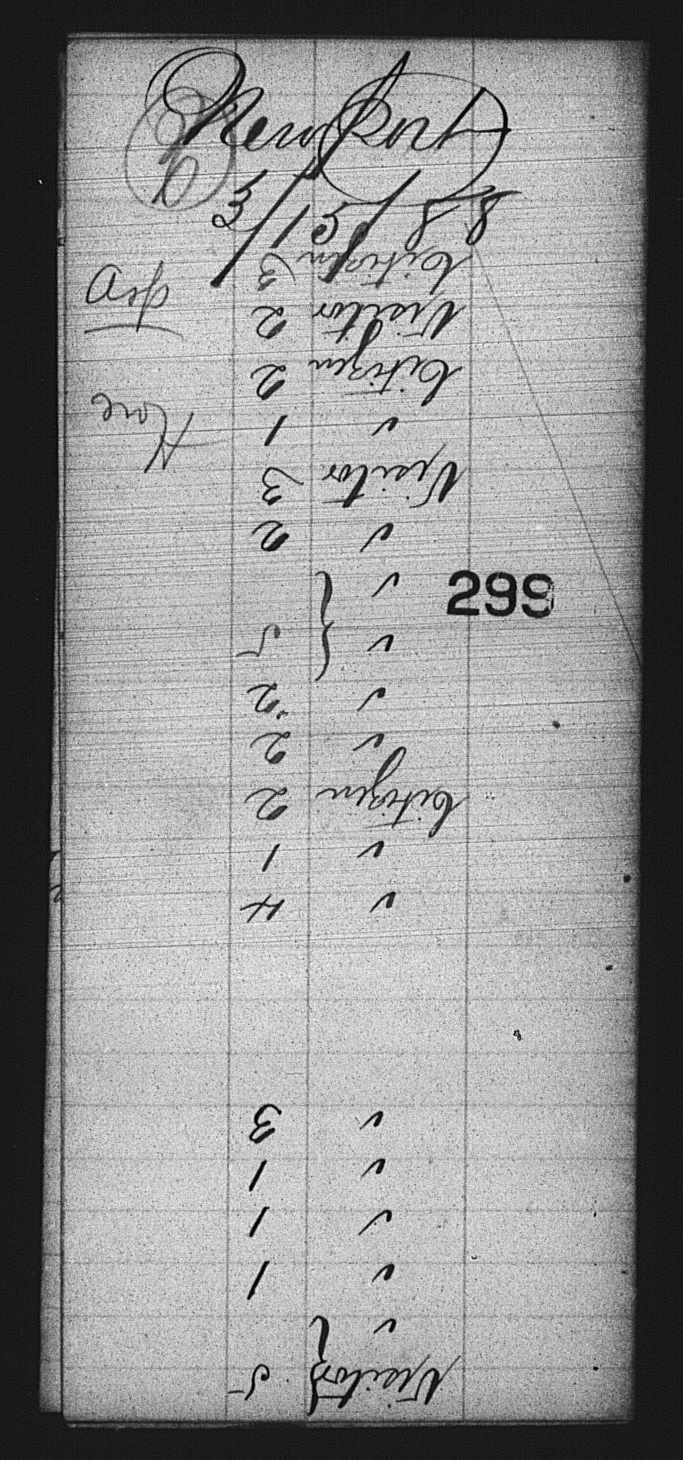 Newport
3/15/88
299
Visitor 5
✓
✓ 1
✓ 1
✓ 1
✓ 3
✓ 4
✓ 1
Citizen 2
✓ 2
✓ 2
✓ 5
✓
✓ 2
Visitor 3
✓ 1
Citizen 2
Visitor 2
Citizen 3